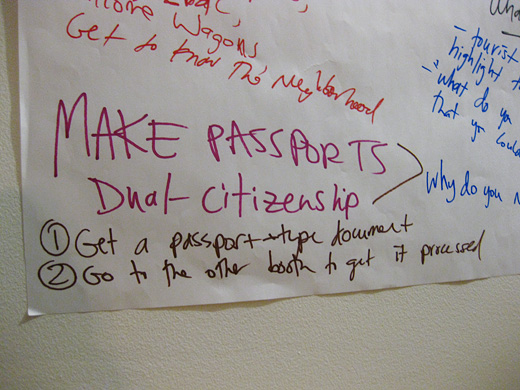 Wagons,
Get to know The Neighborhood
MAKE PASSPORTS
Dual-citizenship
① Get a passport-type document
② Go to the other booth to get it processed
- tourist
highlight
- what do you
that yo
Why do you